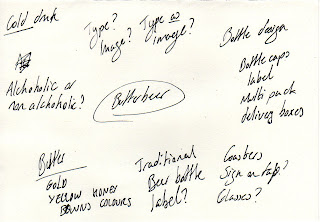 Cold drink
Alchoholic or
non alchoholic?
Type?
Image?
Type as
image?
Bottle design
Bottle caps
label
Multi pack
delivery boxes
Butterbeer
Butter
GOLD
YELLOW HONEY
BROWNS COLOURS
Traditional
Beer bottle
label?
Coasters
Sign on taps?
Glasses?